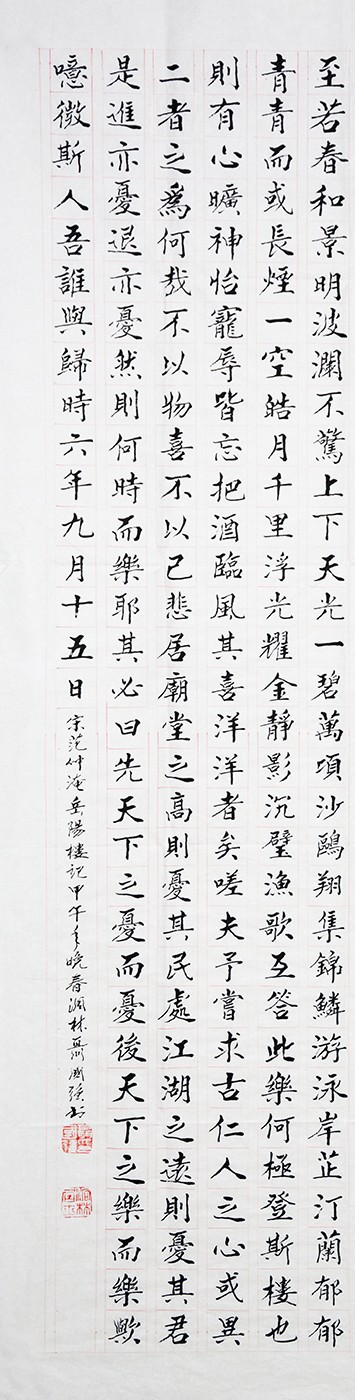 至若春和景明波瀾不驚上下天光一碧萬頃沙鷗翔集錦鱗游泳岸芷汀蘭郁郁
青青而或長煙一空皓月千里浮光耀金靜影沉璧漁歌互答此樂何極登斯樓也
則有心曠神怡寵辱皆忘把酒臨風其喜洋洋者矣嗟夫予嘗求古仁人之心或異
二者之爲何哉不以物喜不以己悲居廟堂之高則憂其民處江湖之遠則憂其君
是進亦憂退亦憂然則何時而樂耶其必曰先天下之憂而憂後天下之樂而樂歟
噫微斯人吾誰與歸時六年九月十五日
宋范仲淹岳陽楼記甲午年晚春